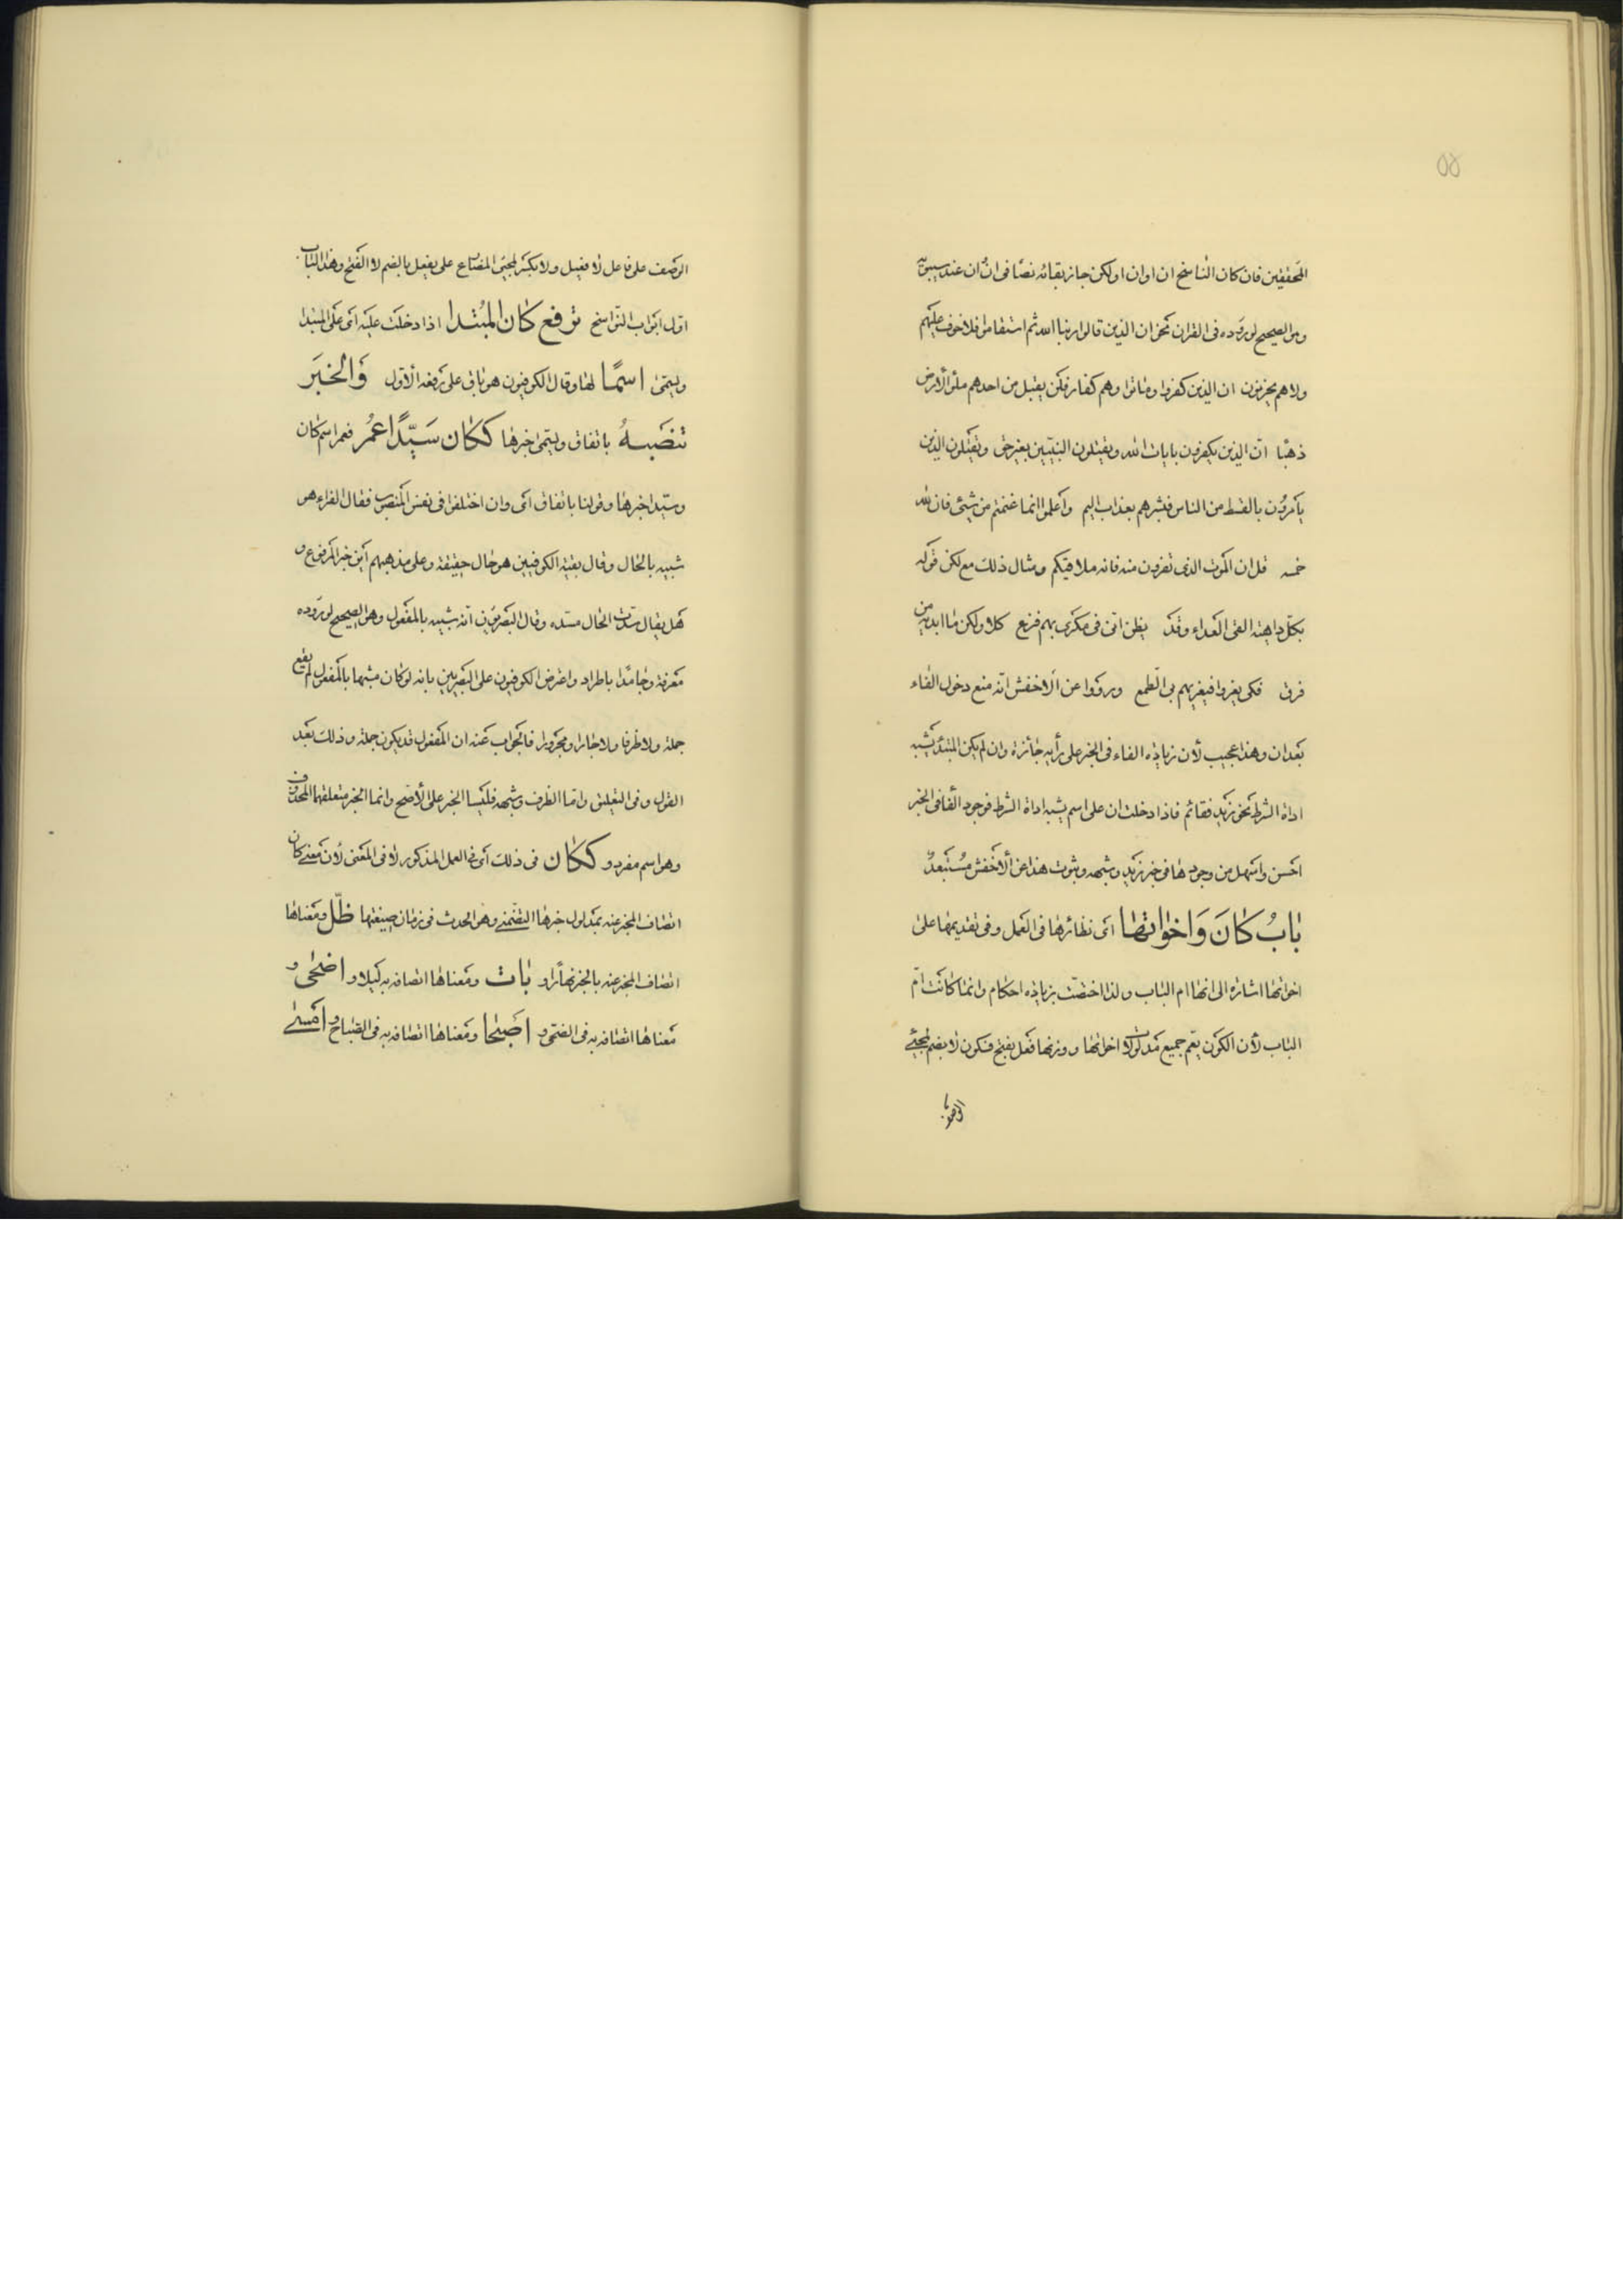 ٥٥
المحققين فان كان الناسخ ان اوان او لكن جاز بقائه نصا فى ان ان عند سيبويه
وهو الصحيح لوروده فى القران نحو ان الذين قالوا ربنا الله ثم استقاموا فلا خوف عليهم
ولا هم يحزنون ان الذين كفروا وماتوا وهم كفار فلن يقبل من احدهم ملئ الأرض
ذهبا ان الذين يكفرون بايات الله ويقتلون النبيين بغير حق ويقتلون الذين
يأمرون بالقسط من الناس فبشرهم بعذاب اليم واعلموا انما غنمتم من شيئى فان لله
خمسه قل ان الموت الذى تفرون منه فانه ملاقيكم ومثال ذلك مع لكن قوله
بكل داهية القى العداء وقد يظن انى فى مكرى بهم فزع كلا ولكن ما ابديه من
فرق فكى يغروا فيغريهم بى الطمع ورووا عن الاخفش انه منع دخول الفاء
بعد ان وهذا عجيب لأن زياده الفاء فى الخبر على رأيه جائزة وان لم يكن المبتدأ يشبه
اداة الشرط نحو زيد فقائم فاذا دخلت ان على اسم يشبه اداة الشرط فوجود الفا فى الخبر
احسن واسهل من وجودها فى خبر زيد وشبهه وثبوت هذا عن الأخفش مستبعد
باب كان واخواتها اى نظائرها فى العمل وفى تقديمها على
اخواتها اشارة الى انها ام الباب ولذا اختصت بزياده احكام وانما كانت ام
الباب لأن الكون يعم جميع مدلولات اخواتها ووزنها فعل بفتح فكون لا بضم لمجيئ
الوصف
الوصف على فاعل لا فعيل ولا بكسر لمجيئ المضارع على يفعل بالضم لا الفتح وهذا الباب
اول ابواب النواسخ ترفع كان المبتدا اذا دخلت عليه اى على المبتدا
ويسمى اسما لها وقال الكوفيون هو باق على رفعه الأول والخبر
تنصبه باتفاق ويسمى خبرها ككان سيدا عمر فعمر اسم كان
وسيدا خبرها وقولنا باتفاق اى وان اختلفوا فى نفس المنصوب فقال الفراء هو
شبيه بالحال وقال بقية الكوفيين هو حال حقيقة وعلى مذهبهم اين خبر المرفوع و
هل يقال سدت الحال مسده وقال البصريون انه شبيه بالمفعول وهو الصحيح لوروده
معرفة وجامدا باطراد واعترض الكوفيون على البصريين بانه لو كان مشبها بالمفعول لم يقع
جملة ولا ظرفا ولا جارا ومجرورا فالجواب عنه ان المفعول قد يكون جملة وذلك بعد
القول وفى التعليق واما الظرف وشبهه فليسا الخبر على الأصح وانما الخبر متعلقهما المحذوف
وهو اسم مفرد و ككان فى ذلك اى فى العمل المذكور لا فى المعنى لأن معنى كان
اتصاف المخبر عنه بمدلول خبرها التضمنى وهو الحدث فى زمان صيغتها ظل ومعناها
اتصاف المخبر عنه بالخبر نهارا و بات ومعناها اتصافه به ليلا و اضحى و
معناها اتصافه به فى الضحى و اصبحا ومعناها اتصافه به فى الصباح و امسى